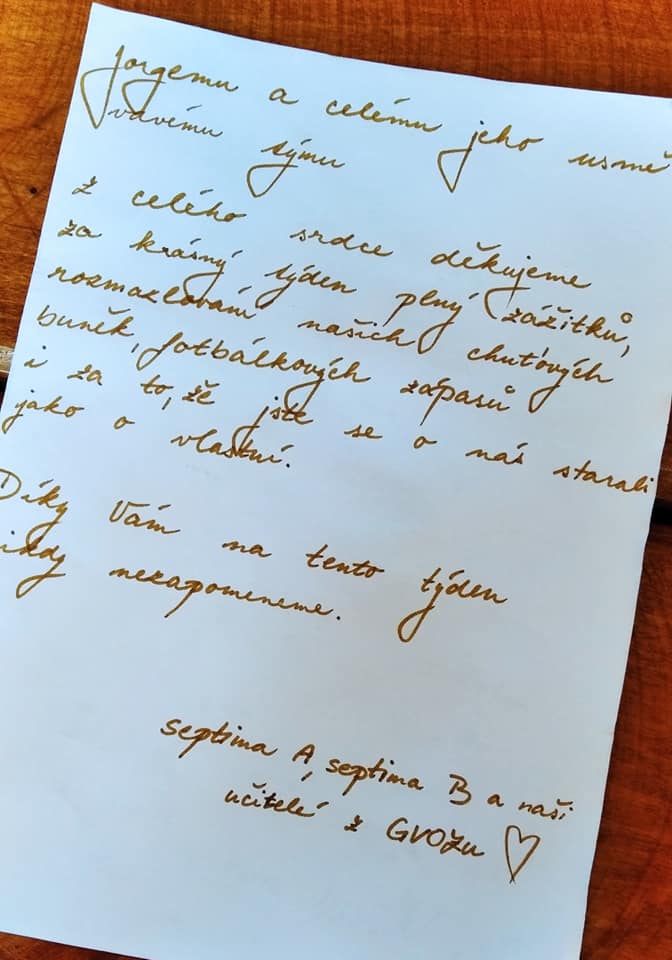 Jorgemu a celému jeho usmě
vavému týmu
Z celého srdce děkujeme
za krásný týden plný zážitků,
rozmazlování našich chuťových
buněk, fotbálkových zápasů
i za to, že jste se o nás starali
jako o vlastní.
Díky Vám na tento týden
ikdy nezapomeneme.
septima A, septima B a naši
učitelé z GVOŽu ♡